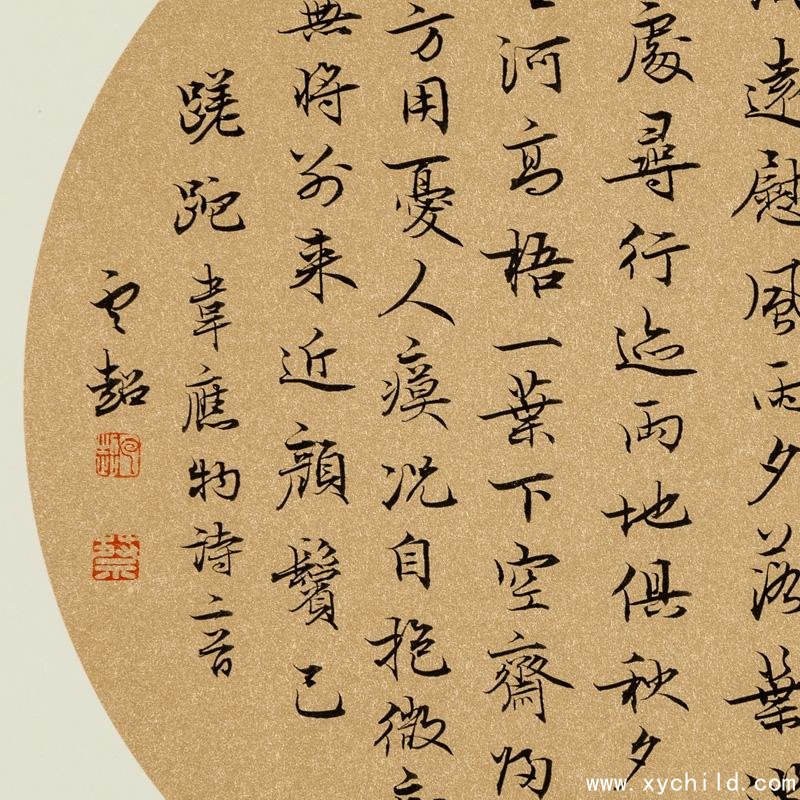 遠慰風雨夕落葉
處尋行迹兩地俱秋夕
河高梧一葉下空齋歸
方用憂人瘼況自抱微
無將別来近顏鬢已
蹉跎韋應物詩二首
www.xychild.com